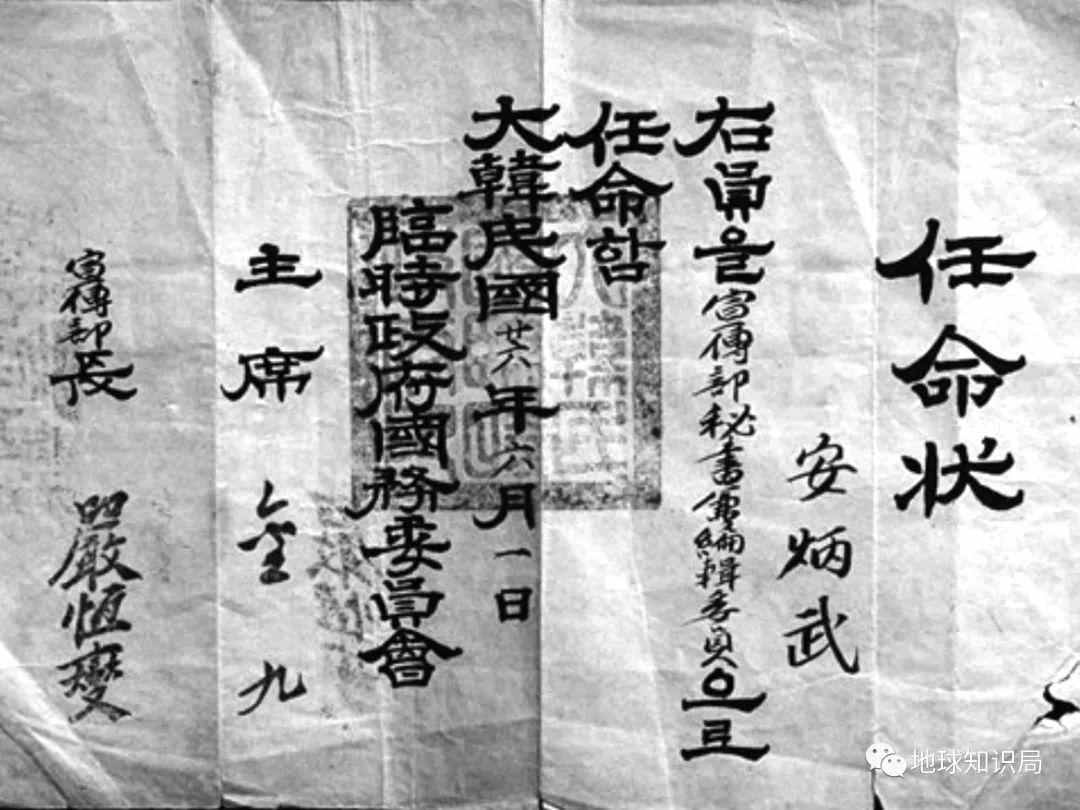 任命状
安炳武
右員을宣傳部秘書兼編輯委員으로
任命함
大韓民國廿六年六月一日
臨時政府國務委員會
主席 金九
宣傳部長 嚴恒燮
地球知识局